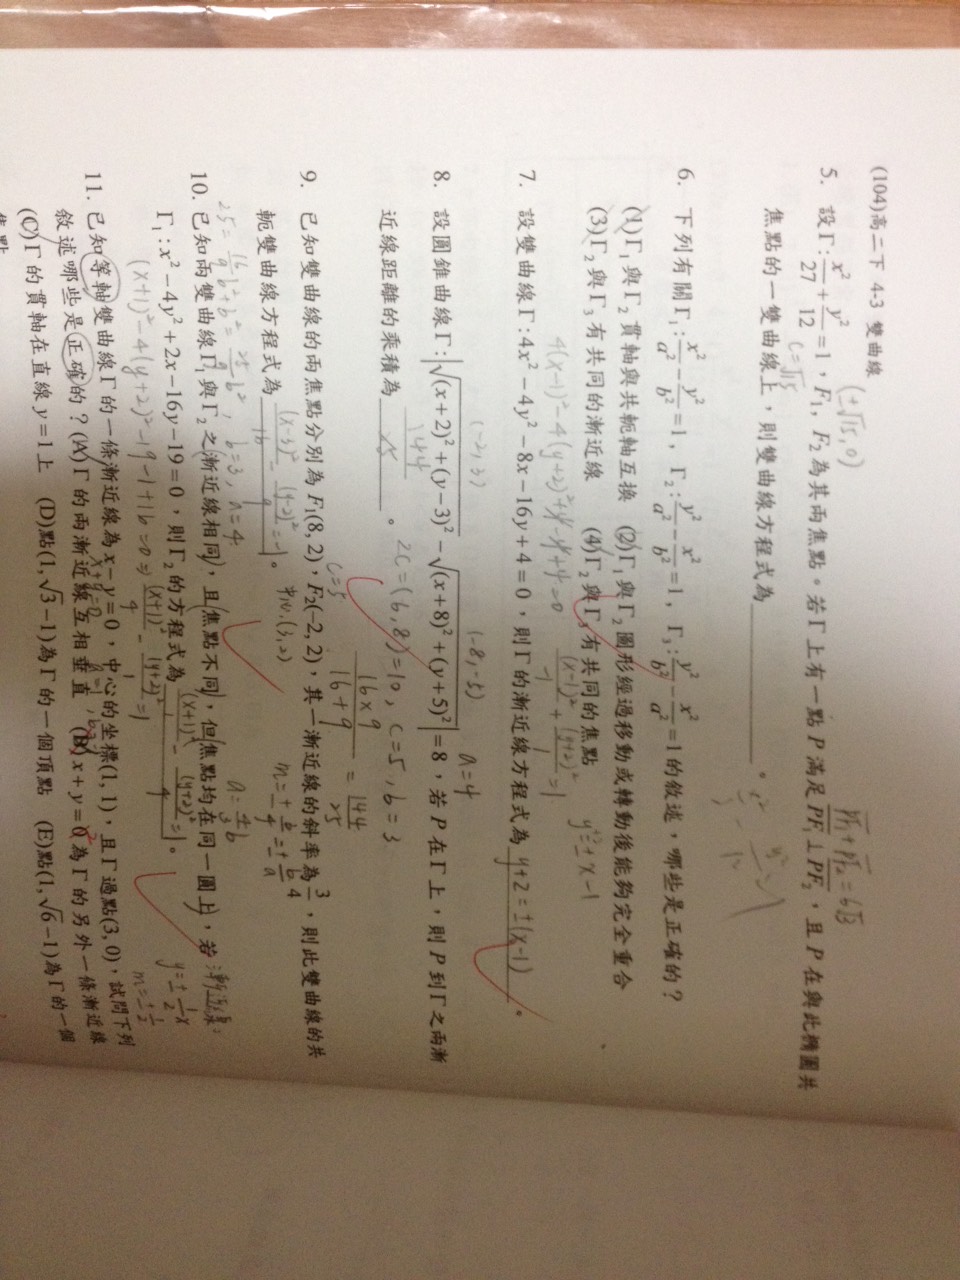 (104)高二下 4-3 雙曲線
(±√15, 0)
5. 設Γ: x²/27 + y²/12 = 1，F₁，F₂為其兩焦點。若Γ上有一點P滿足PF₁⊥PF₂，且P在與此橢圓共
c=√15
PF₁+PF₂=6√3
焦點的一雙曲線上，則雙曲線方程式為________。
6. 下列有關Γ₁: x²/a² − y²/b² = 1，Γ₂: y²/a² − x²/b² = 1，Γ₃: y²/b² − x²/a² = 1的敘述，哪些是正確的？
(1)Γ₁與Γ₂貫軸與共軛軸互換 (2)Γ₁與Γ₂圖形經過移動或轉動後能夠完全重合
(3)Γ₂與Γ₃有共同的漸近線 (4)Γ₂與Γ₃有共同的焦點
4(x-1)²-4(y+2)²+
+4=0
(x-1)²/-1 + (y+2)²/1 = 1
7. 設雙曲線Γ:4x²−4y²−8x−16y+4=0，則Γ的漸近線方程式為 y+2=±(x-1) 。
(-2, 3)
(-8, -5)
a=4
8. 設圓錐曲線Γ:|√((x+2)²+(y−3)²) − √((x+8)²+(y+5)²)|=8，若P在Γ上，則P到Γ之兩漸
近線距離的乘積為________。
144
2c=(6,8)=10, c=5, b=3
16×9/16+9 = 144/25
9. 已知雙曲線的兩焦點分別為F₁(8, 2)，F₂(−2, 2)，其一漸近線的斜率為3/4，則此雙曲線的共
c=5
軛雙曲線方程式為 (x-3)²/16 − (y-2)²/9 = -1 。
中心:(3,2)
25 = 16/9 b²+b² = 25/9 b², b=3, a=4
10. 已知兩雙曲線Γ₁與Γ₂之漸近線相同，且焦點不同，但焦點均在同一圓上，若
漸近線:
Γ₁:x²−4y²+2x−16y−19=0，則Γ₂的方程式為________。
(x+1)²-4(y+2)²-19-1+16=0 ⇒ (x+1)²/4 − (y+2)²/1 = 1
y=±1/2x
m=±1/2
11. 已知等軸雙曲線Γ的一條漸近線為x−y=0，中心的坐標(1, 1)，且Γ過點(3, 0)，試問下列
敘述哪些是正確的？(A)Γ的兩漸近線互相垂直 (B)x+y=0為Γ的另外一條漸近線
(C)Γ的貫軸在直線y=1上 (D)點(1, √3−1)為Γ的一個頂點 (E)點(1, √6−1)為Γ的一個
焦點